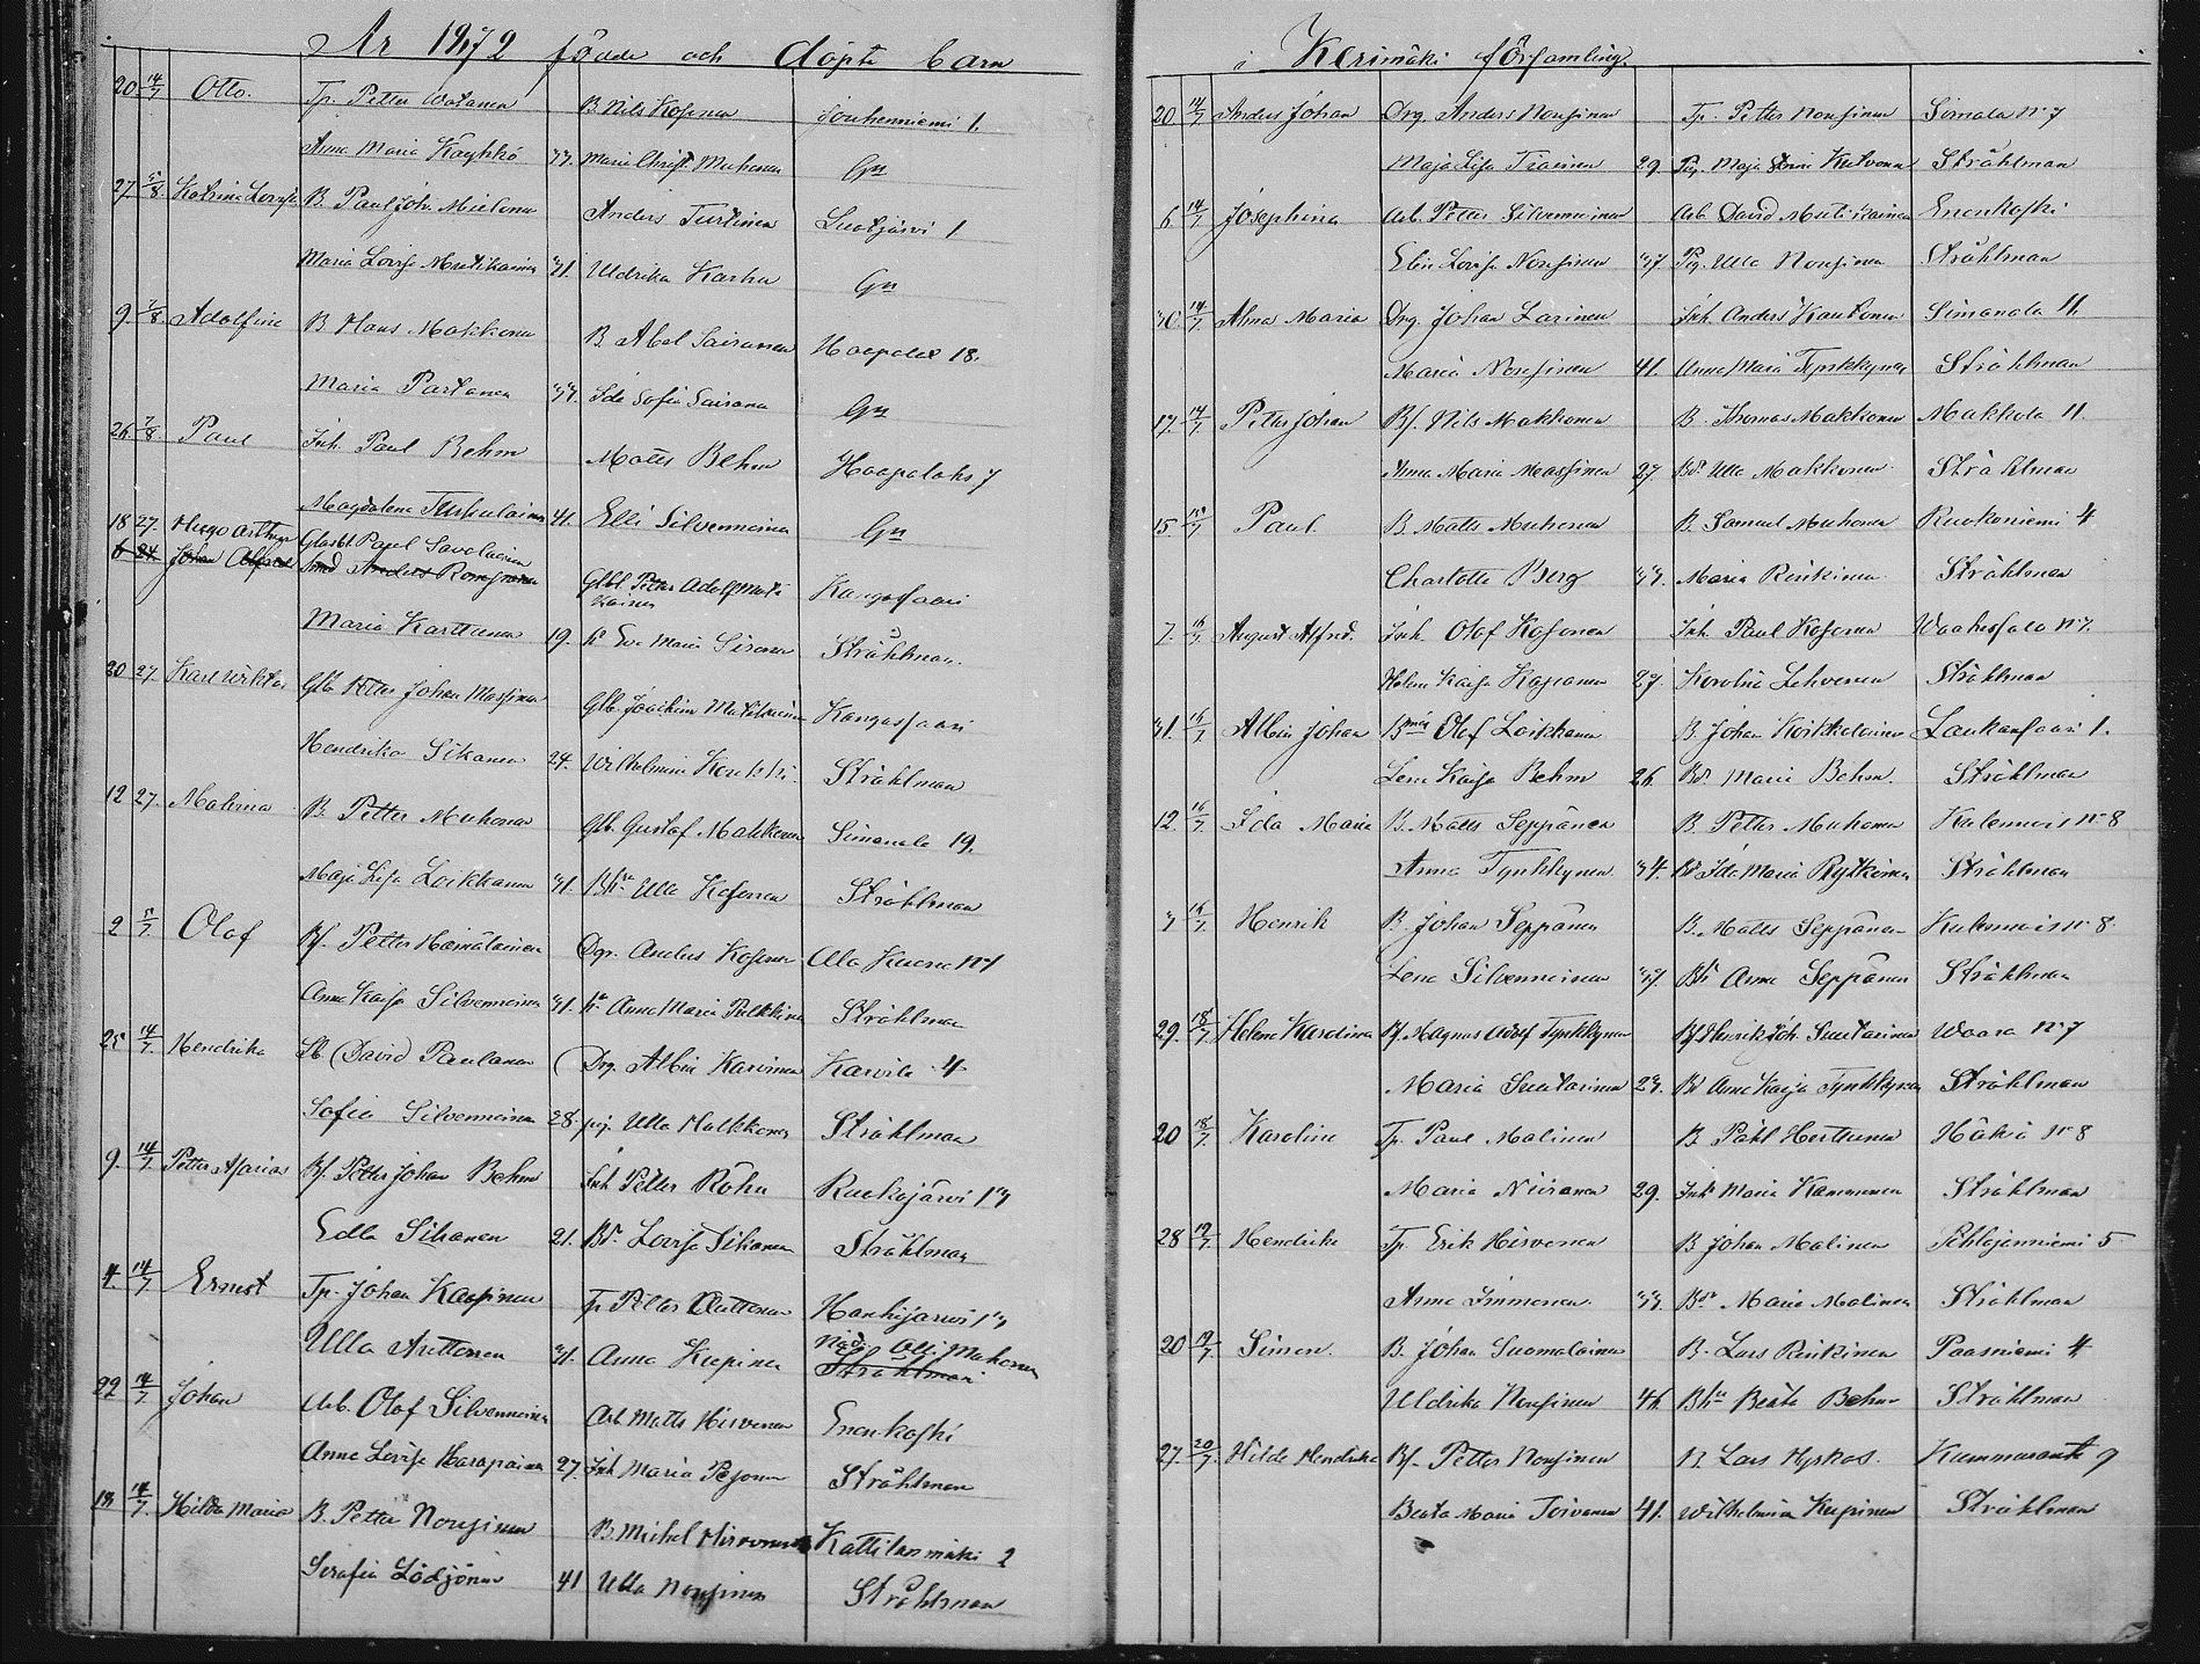 År 1872 födde och döpte barn
20. 14/7 Otto. Tp. Petter Watanen B. Nils Kosonen Jouhenniemi 1.
Anna Maria Käyhkö 33. Maria Christ. Muhonen Gn
27. 5/8 Katrina Lovisa B. Paul Joh. Mielonen Anders Turtinen Luotjärvi 1
Maria Lovisa Mutikainen 31. Uldrika Karhu Gn
9. 7/8. Adolfina B. Hans Makkonen B. Abel Sairanen Haapala 18.
Maria Partanen 33. Ida Sofia Sairanen Gn
26. 7/8 Paul Inh. Paul Behm Matts Behm Haapalaks 7
Magdalena Turkulainen 41. Elli Silvenneinen Gn
18 27. Hugo Arthur Glasbl. Paul Savolainen
6 24 Johan Alfred Smed Anders Romp Glbl. Petter Adolf Muti Kangassaari
kainen
Maria Karttunen 19. Eva Maria Sironen Stråhlman.
20 27. Karl Wiktor Glb. Petter Johan Massinen Glb. Joachim Mutikainen Kangassaari
Hendrika Sikanen 24. Wilhelmina Stråhlman
12 27. Malvina B. Petter Muhonen Glb. Gustaf Makkonen Simanala 19.
Maja Lisa Loikkanen 31. Ulla Kosonen Stråhlman
2 5/7. Olof Bs. Petter Hämäläinen Dgr. Anders Kosonen Ala Kuona No 1
Anna Kaisa Silvenneinen 31. Anna Maria Pulkkinen Stråhlman
25 14/7. Hendrika Sb. David Paulanen Drg. Albin Karvinen Karvila 4
Sofia Silvenneinen 28. pig. Ulla Makkonen Stråhlman
9. 14/7. Petter Asarias Bs. Petter Johan Behm Inh Petter Röhu Ruokojärvi 13
Edla Sikanen 21. Bd. Lovisa Sikanen Stråhlman
4. 14/7. Ernest Tp. Johan Kaasinen Tp Petter Auttonen Hanhijärvi 13
Ulla Auttonen 31. Anna Kupinen Nöd. Olli Muhonen
Stråhlman
22 14/7. Johan Arb. Olof Silvenneinen Arb Matts Hirvonen Enonkoski
Anna Lovisa Harapainen 27. Inh Maria Pesonen Stråhlman
13 14/7. Hilda Maria B. Petter Nousinen B. Michel Hirvonen Kattilanmäki 2
Serafia Lödjönen 41 Ulla Nousinen Stråhlman
i Kerimäki församling.
20 14/7 Anders Johan Drg. Anders Nousinen Tp. Petter Nousinen Simala No 7
Maja Lisa Tiainen 29. Pig. Maja Stina Kutvonen Stråhlman
6. 14/7. Josephina Arb. Petter Silvenneinen Arb David Mutikainen Enonkoski
Elin Lovisa Nousinen 37. Pig. Ulla Nousinen Stråhlman
30. 14/7. Alma Maria Drg. Johan Larinen Inh. Anders Kautonen Simanala 11.
Maria Nousinen 41. Anna Maria Tynkkynen Stråhlman
17. 14/7. Petter Johan Bs. Nils Makkonen B. Thomas Makkonen Makkola 11.
Anna Maria Massinen 27. Bd. Ulla Makkonen Stråhlman
15. 15/7 Paul. B. Matts Muhonen B. Samuel Muhonen Ruokoniemi 4
Charlotta Berg 33. Maria Rinkinen Stråhlman
7. 16/7. August Alfred. Inh. Olof Kosonen Inh. Paul Kosonen Waahersalo No 7.
Helena Kaisa Kapanen 27. Karolina Lehvonen Stråhlman
31. 16/7. Albin Johan Olof Loikkanen B. Johan Koikkalainen Laukansaari 1.
Lena Kaisa Behm 26. Bd. Maria Behm. Stråhlman
12. 16/7. Ida Maria B. Matts Seppänen B. Petter Muhonen Kulennois No 8
Anna Tynkkynen 34. Bd Ida Maria Rytkönen Stråhlman
3 16/7. Henrik B. Johan Seppänen B. Matts Seppänen Kulennois No 8.
Lena Silvenneinen 37. Anna Seppänen Stråhlman
29. 18/7. Helena Karolina Bs. Magnus Adolf Tynkkynen Bs Henrik Joh. Suutarinen Waara No 7
Maria Suutarinen 23. Bd Anna Kaisa Tynkkynen Stråhlman
20 18/7. Karolina Tp. Paul Malinen B. Påhl Herttuainen Häkiö No 8
Maria Niiranen 29. Inh Maria Kammonen Stråhlman
28 19/7. Hendrika Tp. Erik Hirvonen B. Johan Malinen Pehlajanniemi 5
Anna Immonen. 33. Bd. Maria Malinen Stråhlman
20 19/7. Simon. B. Johan Suomalainen B. Lars Rinkinen Paasniemi 4
Uldrika Nousinen 46. Beata Behm Stråhlman
27. 20/7. Hilda Hendrika Bs. Petter Nousinen B. Lars Hyrkäs. Kummuranta 9
Beata Maria Toivanen 41. Wilhelmina Kupinen Stråhlman